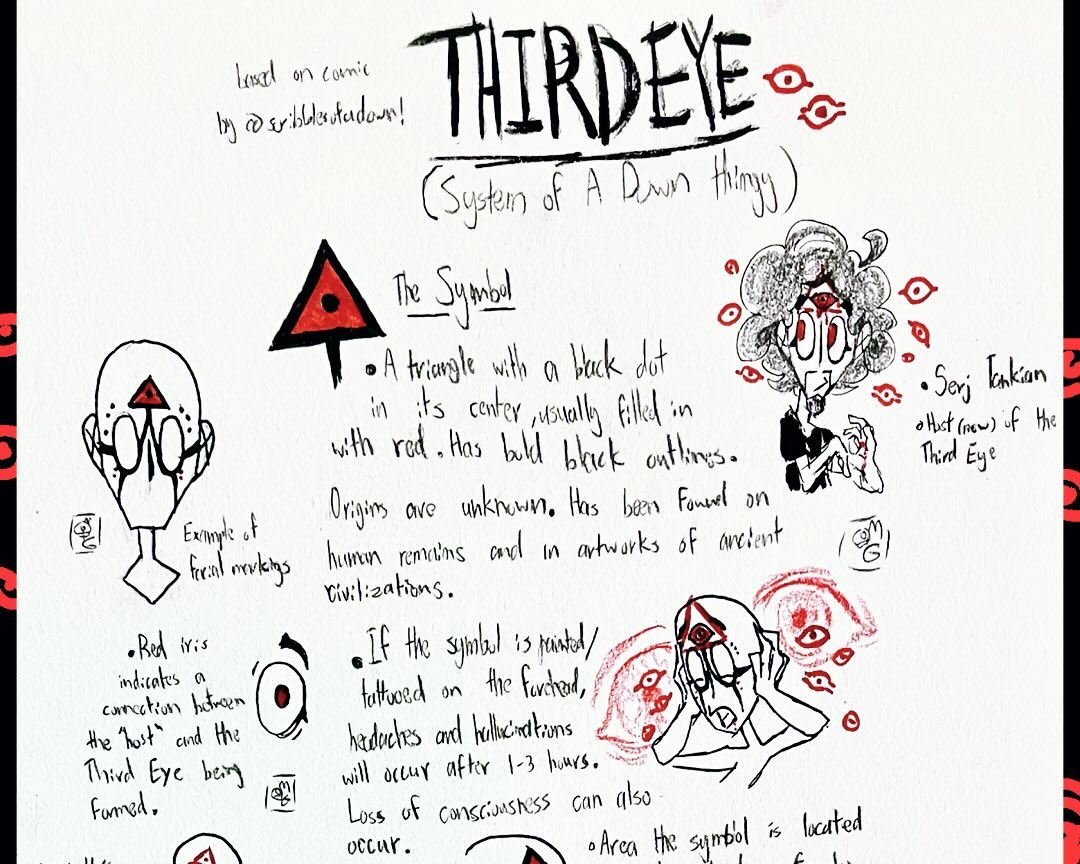 based on comic
by @scribblesofadown!
THIRD EYE
(System of A Down thingy)
The Symbol
• A triangle with a black dot
in its center, usually filled in
with red. Has bold black outlines.
Origins are unknown. Has been Found on
human remains and in artworks of ancient
civilizations.
• Serj Tankian
• Host (new) of the
Third Eye
Example of
facial markings
• Red iris
indicates a
connection between
the "host" and the
Third Eye being
formed.
• If the symbol is painted/
tattooed on the forehead,
headaches and hallucinations
will occur after 1-3 hours.
Loss of consciousness can also
occur.
• Area the symbol is located